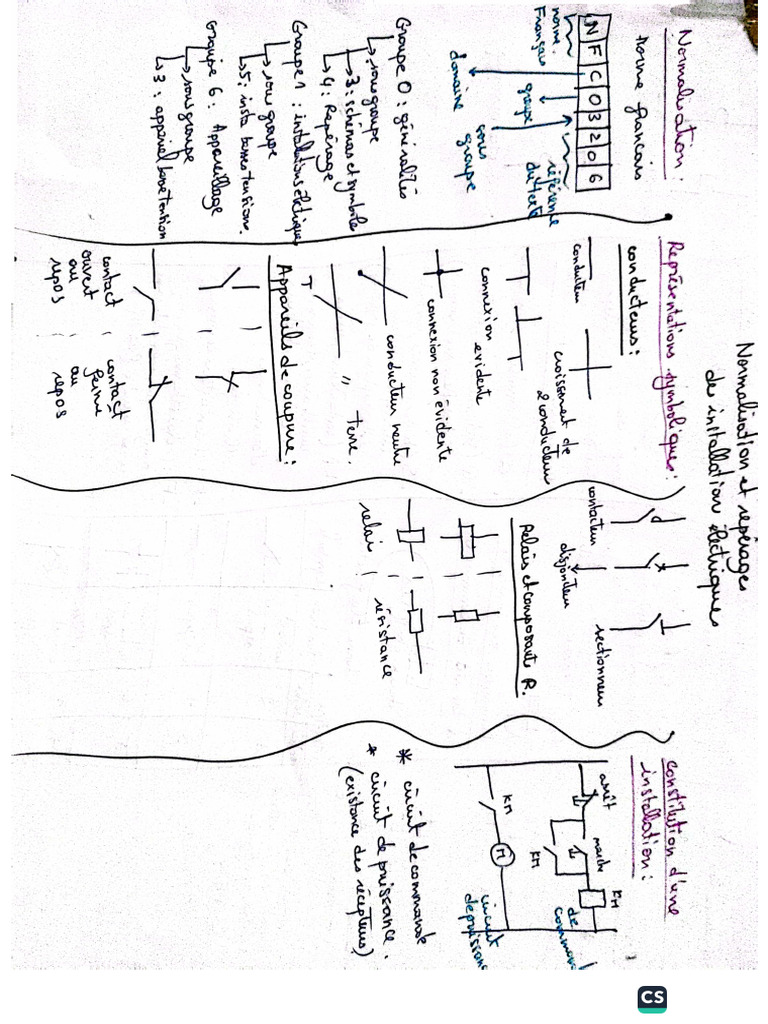 Normalisation et repérages
des installation électriques
Normalisation :
norme français
N F C 0 3 2 0 6
norme
Français
groupe
référence
du texte
domaine
sous
groupe
Groupe 0 : généralités
sous groupe
3 : schémas et symbole
4 : Repérage
Groupe 1 : installations électriques
sous groupe
5 : insta basses tensions.
Groupe 6 : Appareillage
sous groupe
3 : appareil basse tension
Représentations symboliques :
conducteurs :
conducteur
croissement de
2 conducteurs
connexion
evidente
connexion non évidente
conducteur neutre
T
" Terre.
Appareils de coupure :
contact
ouvert
au
repos
contact
fermé
au
repos
contacteur
disjoncteur
sectionneur
Relais et composants R.
relai
résistance
constitution d'une
installation :
arrêt
marche
KM
KM
de
KM
M
circuit
* circuit de commande
* circuit de puissance.
(existance des récepteurs)
CS